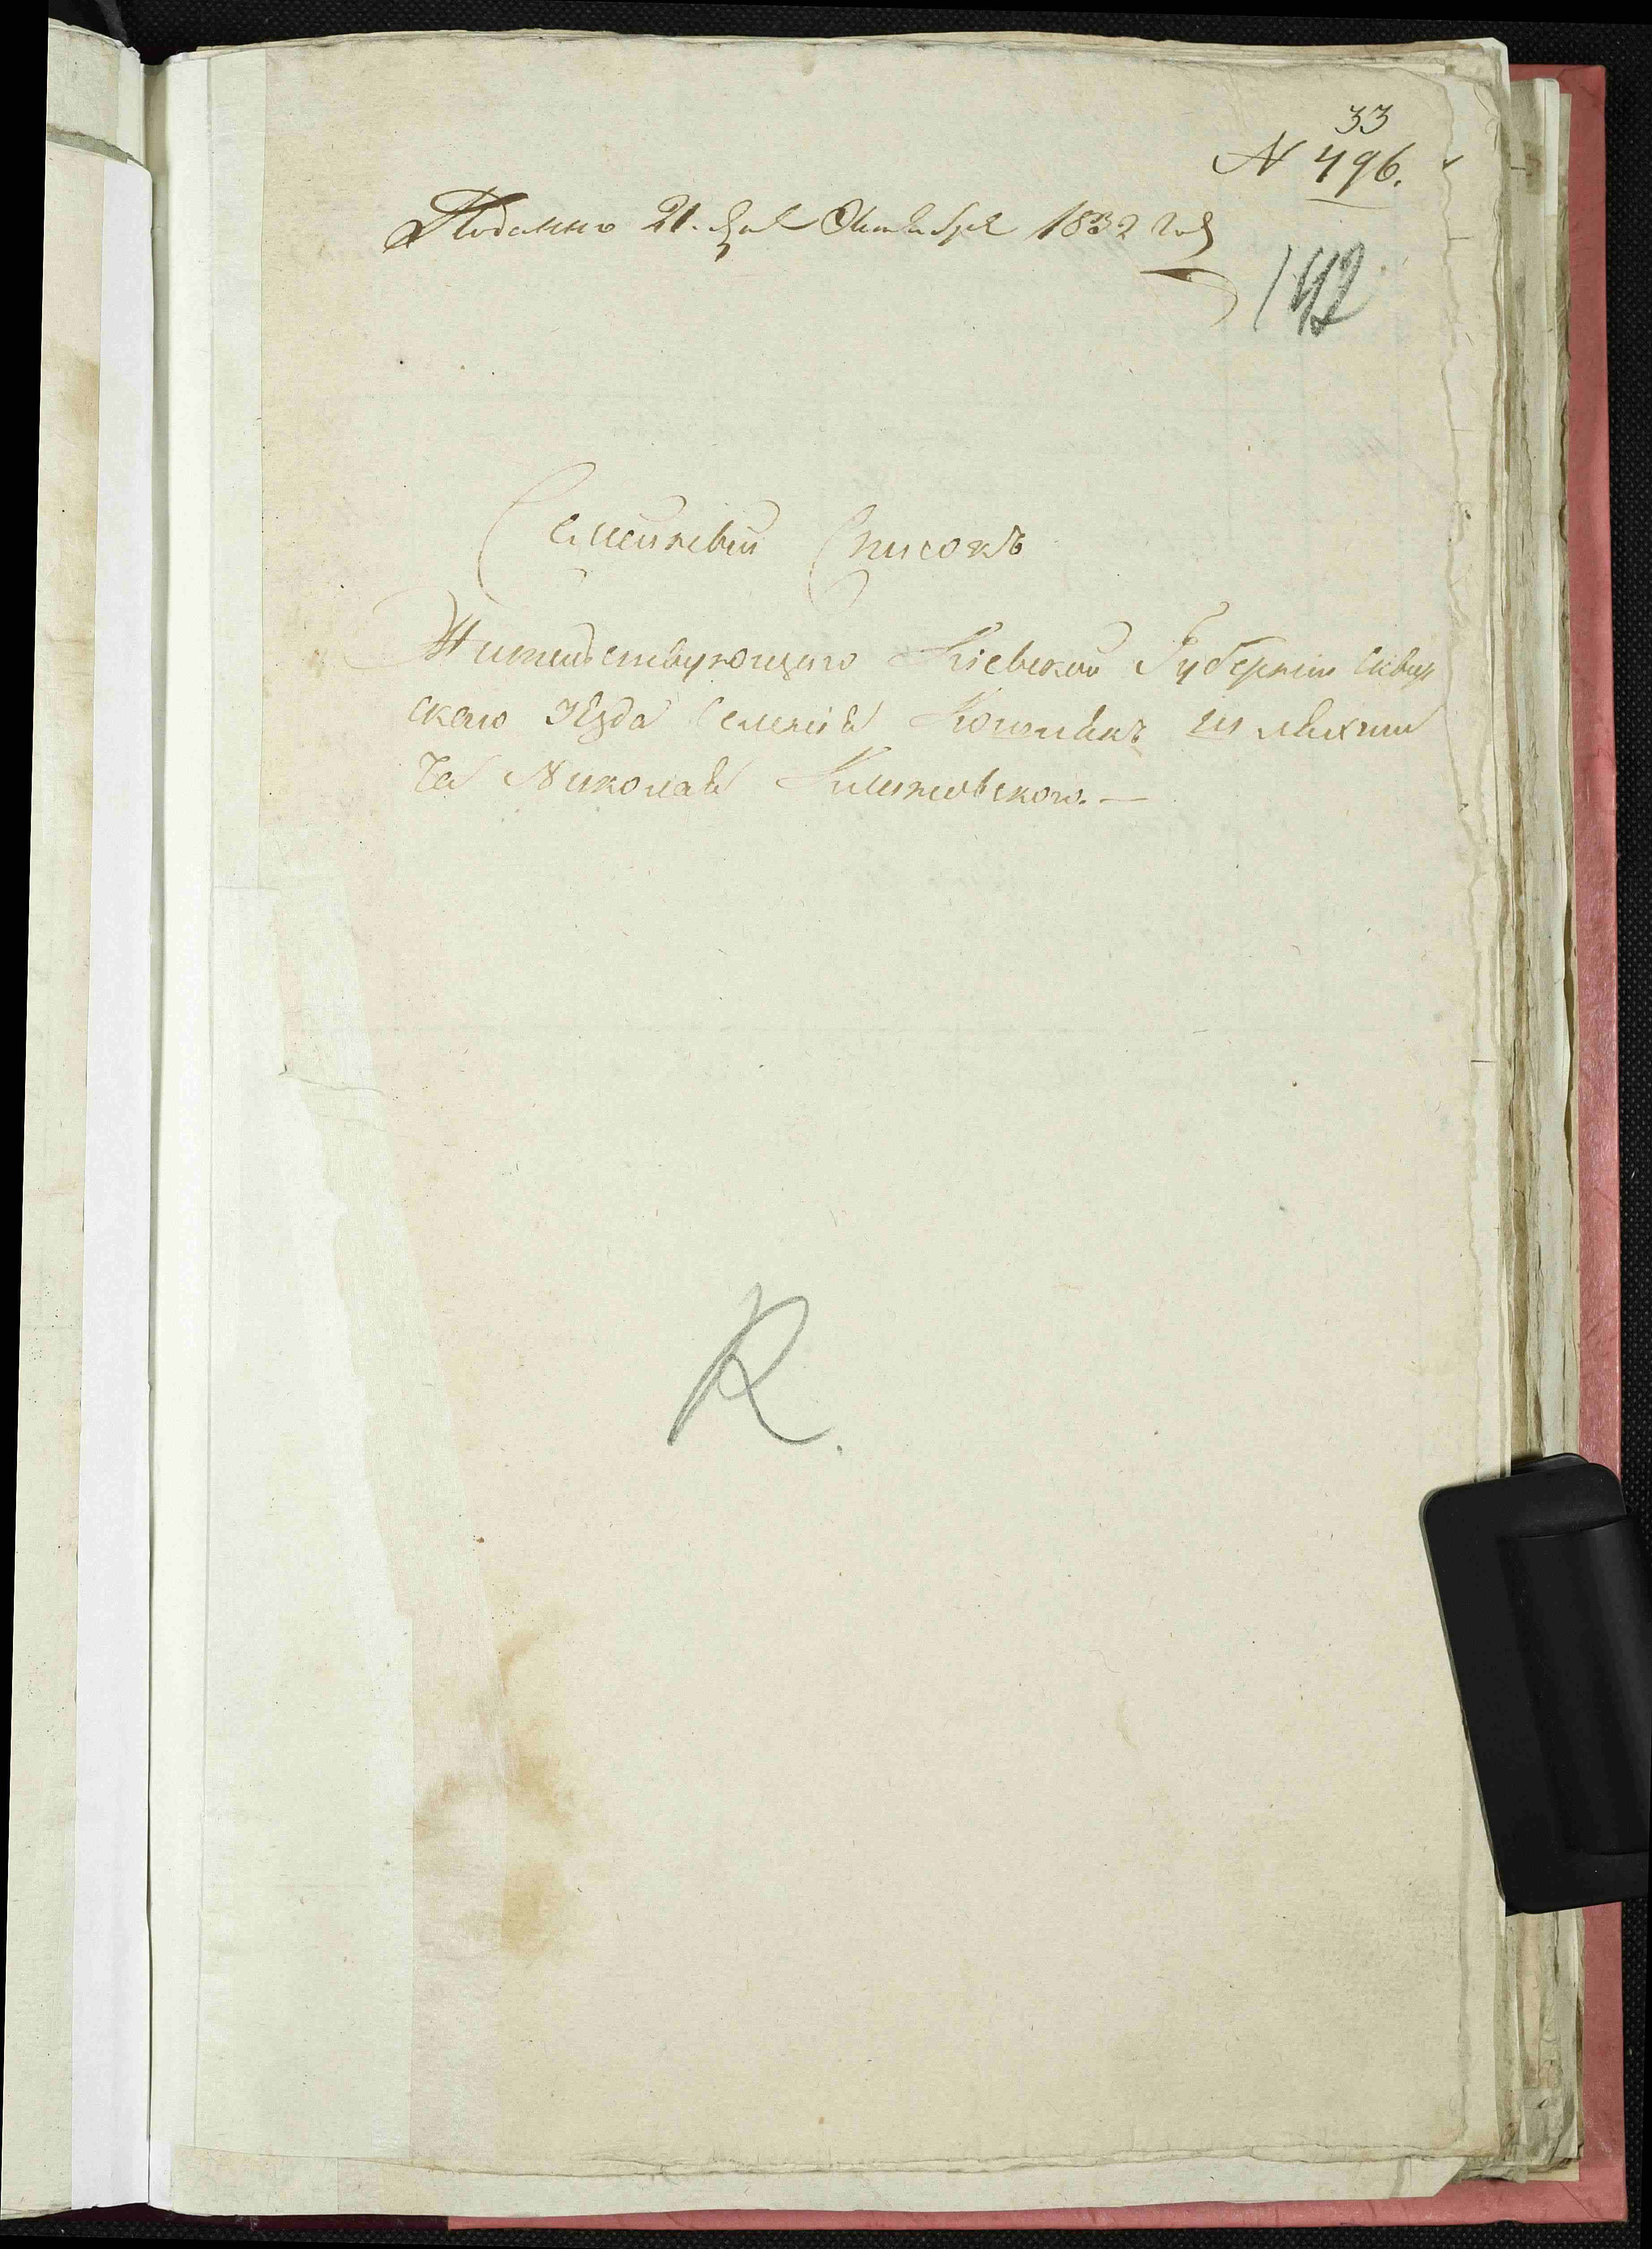 33
N 496.
Поданно 21. дня Октября 1832 года
142
Семейный Списокъ
Жительствующаго Кіевской Губерніи Сквир
скаго уѣзда шляхти
ча Николая
R.